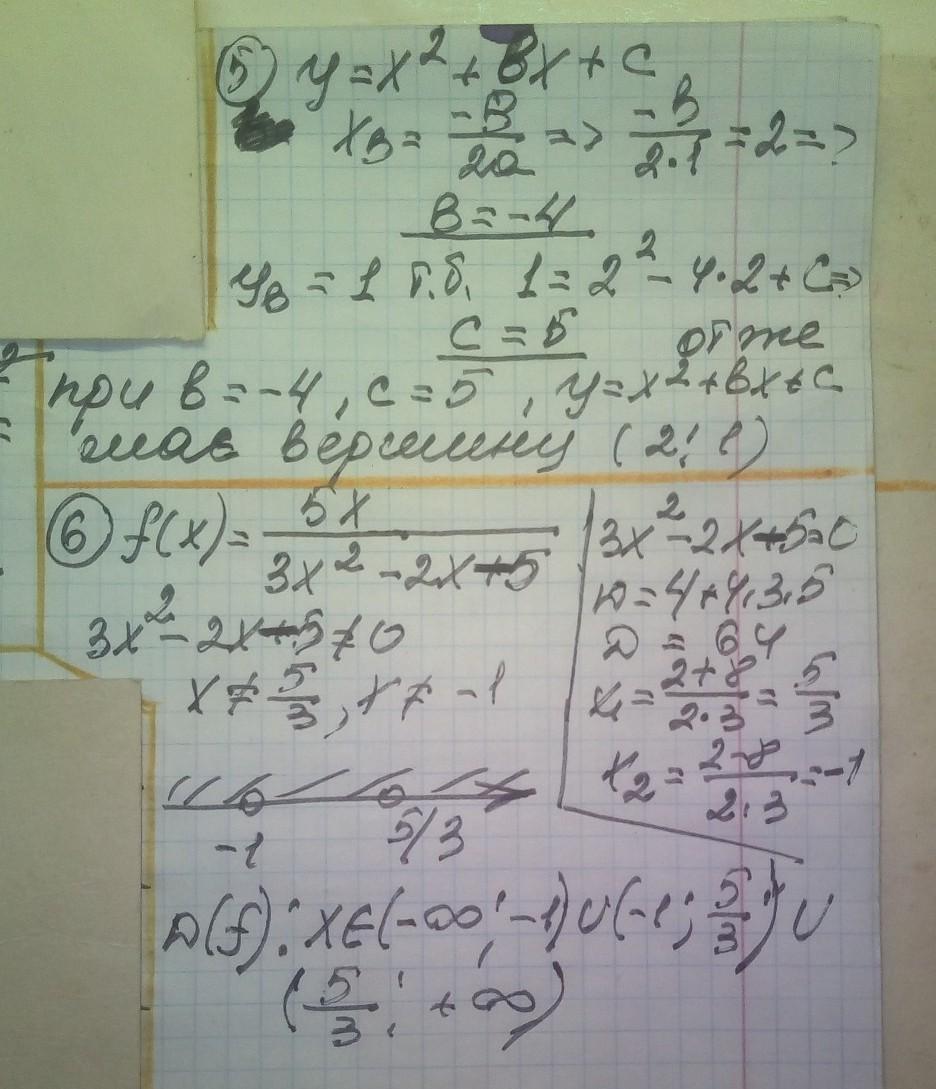 5 y = x² + bx + c
xв = -B/2a => -B/2·1 = 2 =>
B = -4
yв = 1 т.б. 1 = 2² - 4·2 + c =>
c = 5 отже
при в = -4, c = 5, y = x² + вx + c
має вершину (2; 1)
6 f(x) = 5x/3x² - 2x - 5
3x² - 2x - 5 ≠ 0
x ≠ 5/3, x ≠ -1
-1 5/3
3x² - 2x - 5 = 0
D = 4 + 4·3·5
D = 64
x₁ = 2+8/2·3 = 5/3
x₂ = 2-8/2·3 = -1
D(f): x∈(-∞; -1)∪(-1; 5/3)∪
(5/3; +∞)